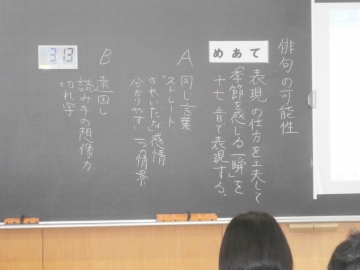 俳句の可能性
めあて
表現の仕方を工夫して
「季節を感じる一瞬」を
十七音で表現する。
A 同じ言葉
ストレート
きれいだな 感情
分かりやすい 一つの情景
B 遠回し
読み手の想像力
切れ字
3:13